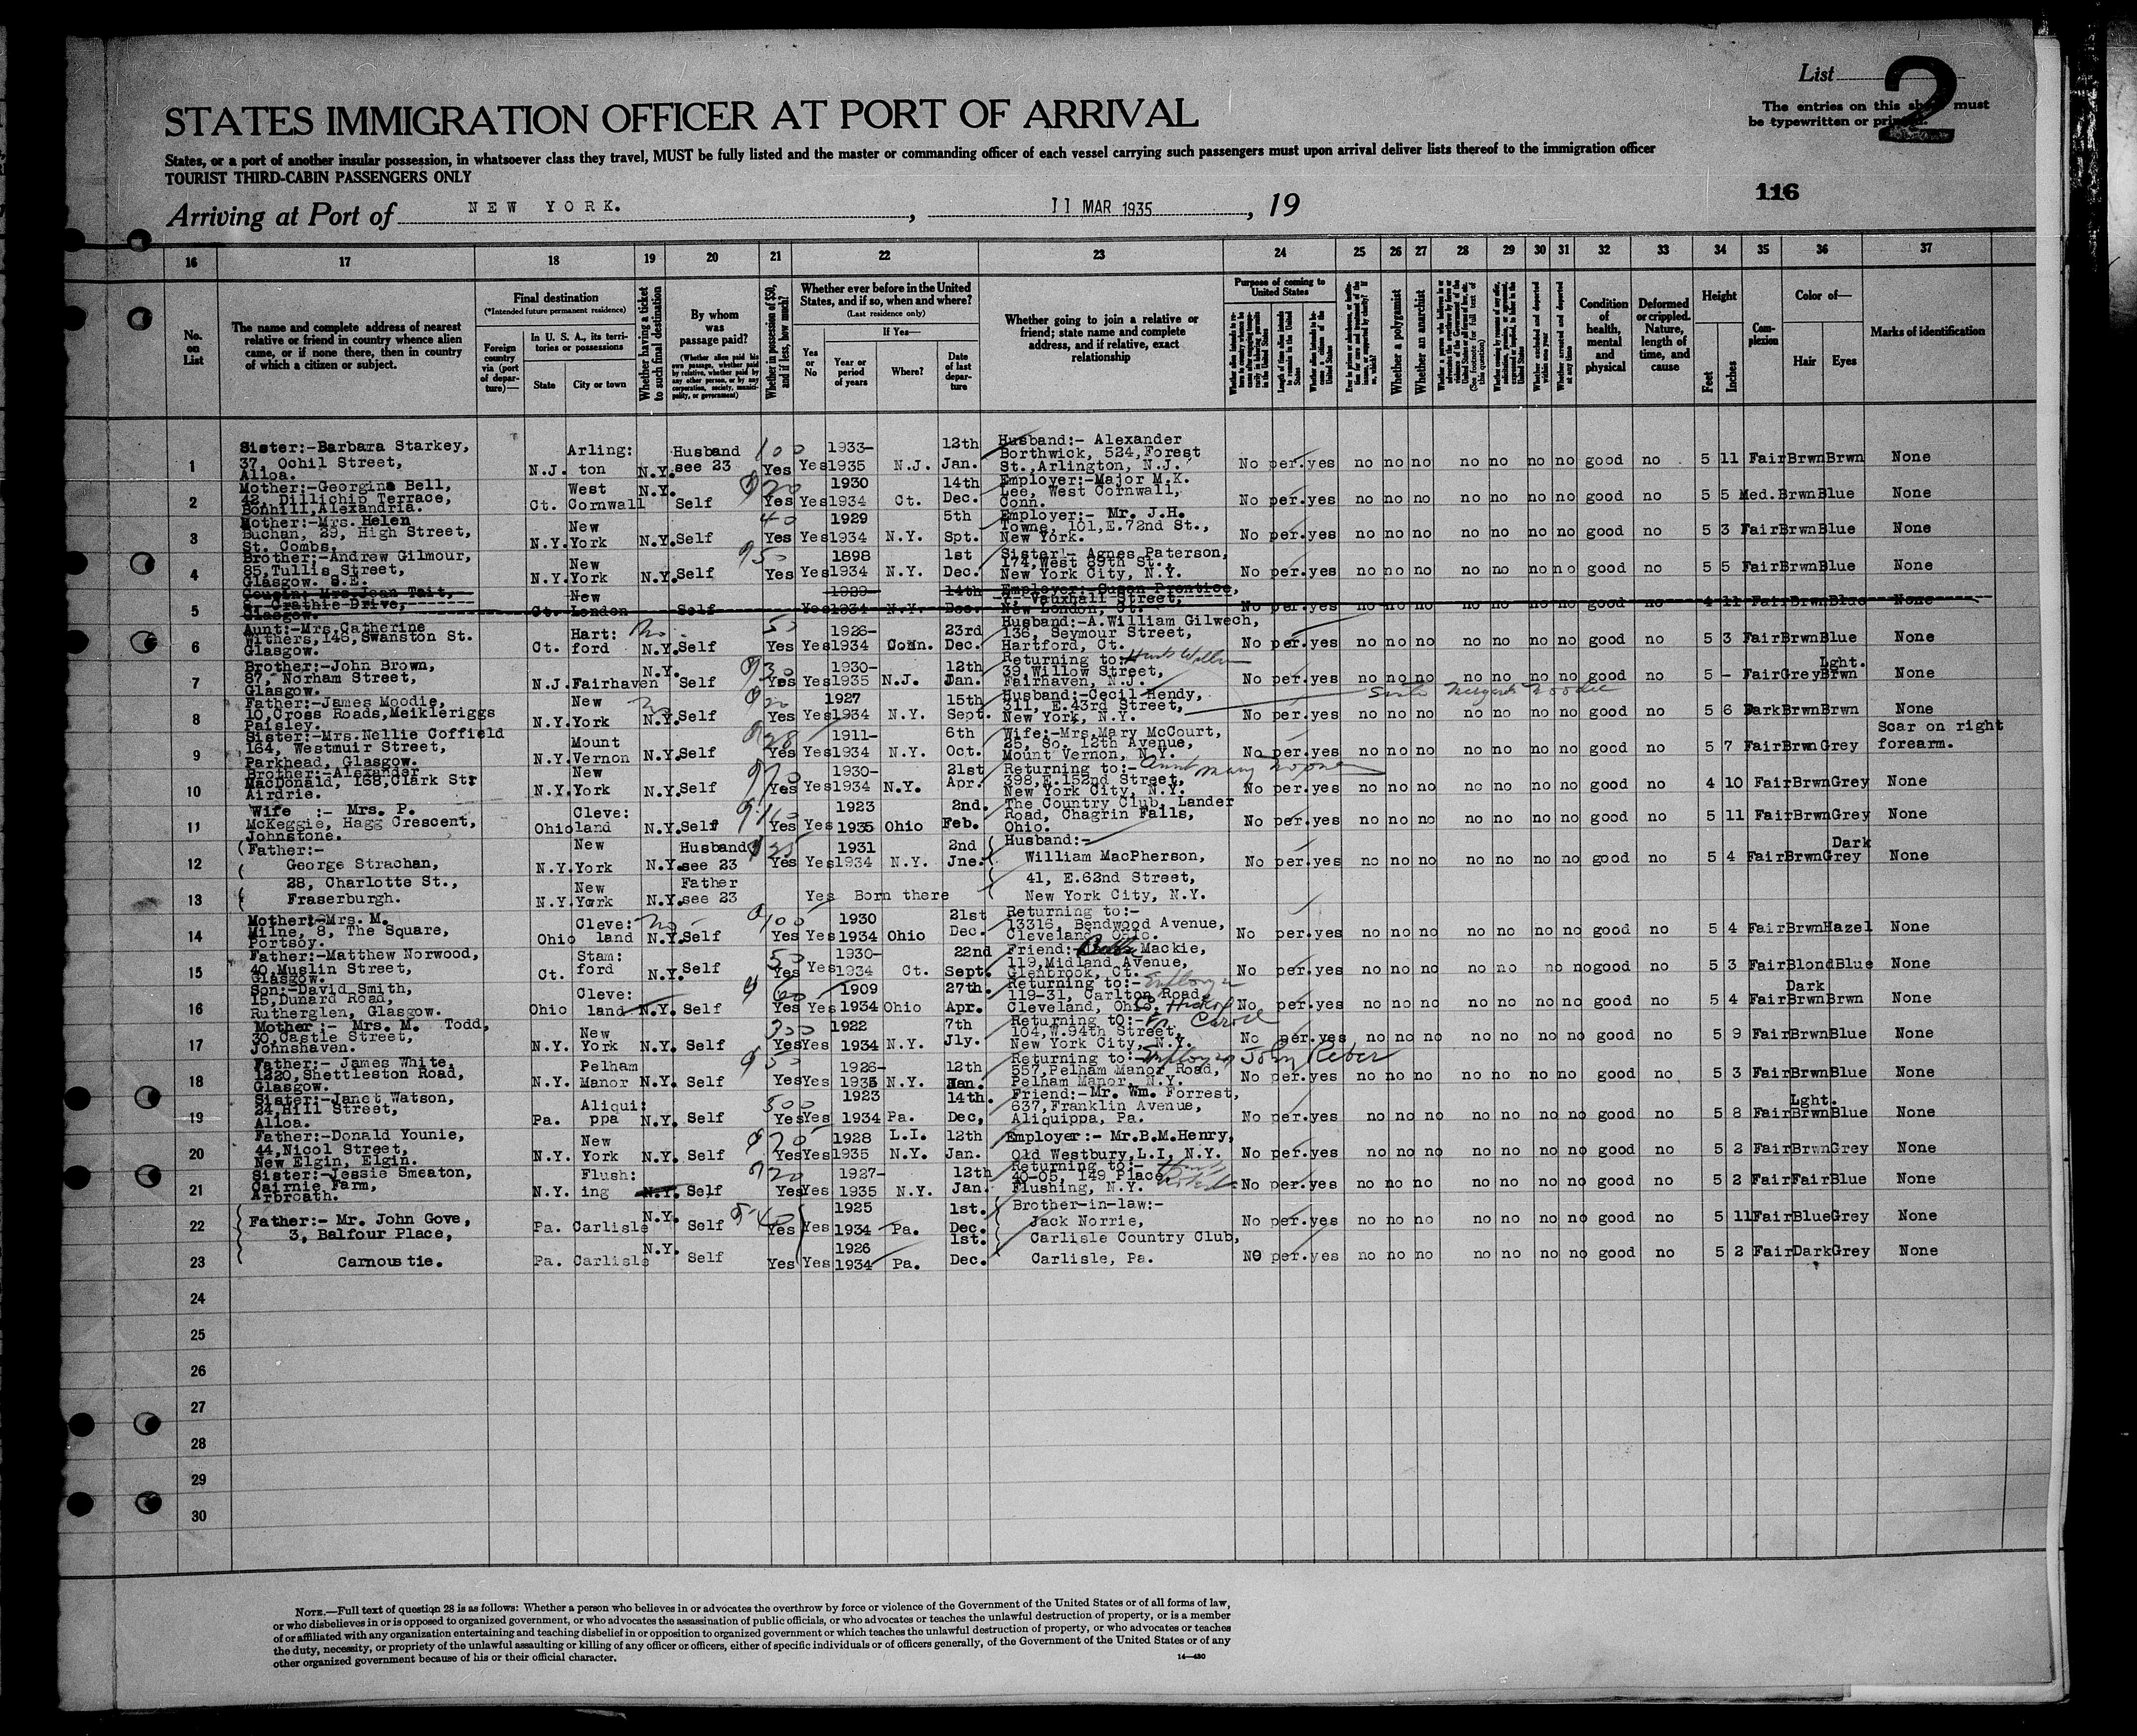 List 2
The entries on this sheet must
be typewritten or printed.
STATES IMMIGRATION OFFICER AT PORT OF ARRIVAL
States, or a port of another insular possession, in whatsoever class they travel, MUST be fully listed and the master or commanding officer of each vessel carrying such passengers must upon arrival deliver lists thereof to the immigration officer
TOURIST THIRD-CABIN PASSENGERS ONLY
116
Arriving at Port of NEW YORK. , 11 MAR 1935 , 19
16 17 18 19 20 21 22 23 24 25 26 27 28 29 30 31 32 33 34 35 36 37
No. on List
The name and complete address of nearest relative or friend in country whence alien came, or if none there, then in country of which a citizen or subject.
Final destination
(*Intended future permanent residence)
Foreign country via (port of departure)—
In U. S. A., its territories or possessions
State
City or town
Whether having a ticket to such final destination
By whom was passage paid?
(Whether alien paid his own passage, whether paid by relative, whether paid by any other person, or by any corporation, society, municipality, or government)
Whether in possession of $50, and if less, how much?
Whether ever before in the United States, and if so, when and where?
(Last residence only)
Yes or No
If Yes—
Year or period of years
Where?
Date of last departure
Whether going to join a relative or friend; state name and complete address, and if relative, exact relationship
Purpose of coming to United States
Whether a polygamist
Whether an anarchist
Condition of health, mental and physical
Deformed or crippled. Nature, length of time, and cause
Height
Feet
Inches
Complexion
Color of—
Hair
Eyes
Marks of identification
1 Sister:-Barbara Starkey, 37, Ochil Street, Alloa. N.J. Arling: ton N.Y. Husband see 23 100 Yes Yes 1933- 1935 N.J. 12th Jan. Husband:- Alexander Borthwick, 524, Forest St., Arlington, N.J. No per. yes no no no no no no no good no 5 11 Fair Brwn Brwn None
2 Mother:-Georgina Bell, 42, Dillichip Terrace, Bonhill, Alexandria. Ct. West Cornwall N.Y. Self 20 Yes Yes 1930 1934 Ct. 14th Dec. Employer:-Major M.K. Lee, West Cornwall, Conn. No per. yes no no no no no no no good no 5 5 Med. Brwn Blue None
3 Mother:-Mrs. Helen Buchan, 29, High Street, St. Combs. N.Y. New York N.Y. Self 40 Yes Yes 1929 1934 N.Y. 5th Spt. Employer:- Mr. J.H. Towne, 101, E.72nd St., New York. No per. yes no no no no no no no good no 5 3 Fair Brwn Blue None
4 Brother:-Andrew Gilmour, 85, Tullis Street, Glasgow. S.E. N.Y. New York N.Y. Self 50 Yes Yes 1898 1934 N.Y. 1st Dec. Sister:- Agnes Paterson, 174, West 89th St., New York City, N.Y. No per. yes no no no no no no no good no 5 5 Fair Brwn Blue None
5 Cousin: Mrs. Jean Tait, Crathie Drive, Glasgow. Ct. New London Self Yes 1929 1934 N.Y. 14th Dec. Employer:- Susan Prentice, Vauxhall Street, New London, Ct. No per. yes no no no no no no no good no 4 11 Fair Brwn Blue None
6 Aunt:-Mrs. Catherine Withers, 146, Swanston St. Glasgow. Ct. Hart: ford No N.Y. Self 50 Yes Yes 1926- 1934 Conn. 23rd Dec. Husband:-A. William Gilwech, 136, Seymour Street, Hartford, Ct. No per. yes no no no no no no no good no 5 3 Fair Brwn Blue None
7 Brother:-John Brown, 87, Norham Street, Glasgow. N.J. Fairhaven N.Y. Self 30 Yes Yes 1930- 1935 N.J. 12th Jan. Returning to: 39, Willow Street, Fairhaven, N.J. No per. yes no no no no no no no good no 5 - Fair Grey Lght. Brwn None
8 Father:-James Moodie, 10, Cross Roads, Meikleriggs Paisley. N.Y. New York N.Y. Self Yes Yes 1927 1934 N.Y. 15th Sept. Husband:-Cecil Hendy, 311, E.43rd Street, New York, N.Y. No per. yes no no no no no no no good no 5 6 Dark Brwn Brwn None
9 Sister:-Mrs. Nellie Coffield 164, Westmuir Street, Parkhead, Glasgow. N.Y. Mount Vernon N.Y. Self 28 Yes Yes 1911- 1934 N.Y. 6th Oct. Wife:-Mrs. Mary McCourt, 25, So. 12th Avenue, Mount Vernon, N.Y. No per. yes no no no no no no no good no 5 7 Fair Brwn Grey Scar on right forearm.
10 Brother:-Alexander MacDonald, 168, Clark Str Airdrie. N.Y. New York N.Y. Self Yes Yes 1930- 1934 N.Y. 21st Apr. Returning to:- Aunt Mary 398, E.152nd Street, New York City, N.Y. No per. yes no no no no no no no good no 4 10 Fair Brwn Grey None
11 Wife :- Mrs. P. McKeggie, Hagg Crescent, Johnstone. Ohio Cleve: land N.Y. Self Yes Yes 1923 1935 Ohio 2nd. Feb. The Country Club, Lander Road, Chagrin Falls, Ohio. No per. yes no no no no no no no good no 5 11 Fair Brwn Grey None
12 Father:- George Strachan, N.Y. New York N.Y. Husband see 23 25 Yes Yes 1931 1934 N.Y. 2nd Jne. Husband:- William MacPherson, No per. yes no no no no no no no good no 5 4 Fair Brwn Dark Grey None
13 28, Charlotte St., Fraserburgh. N.Y. New York N.Y. Father see 23 Yes Born there 41, E.62nd Street, New York City, N.Y.
14 Mother:-Mrs. M. Milne, 8, The Square, Portsoy. Ohio Cleve: land No N.Y. Self 100 Yes Yes 1930 1934 Ohio 21st Dec. Returning to:- 13316, Bendwood Avenue, Cleveland, Ohio. No per. yes no no no no no no no good no 5 4 Fair Brwn Hazel None
15 Father:-Matthew Norwood, 40, Muslin Street, Glasgow. Ct. Stam: ford N.Y. Self 50 Yes Yes 1930- 1934 Ct. 22nd Sept. Friend:- Mackie, 119, Midland Avenue, Glenbrook, Ct. No per. yes no no no no no no no good no 5 3 Fair Blond Blue None
16 Son:-David Smith, 15, Dunard Road, Rutherglen, Glasgow. Ohio Cleve: land N.Y. Self 60 Yes Yes 1909 1934 Ohio 27th. Apr. Returning to:- Employer 119-31, Carlton Road, Cleveland, Ohio. No per. yes no no no no no no no good no 5 4 Fair Dark Brwn Brwn None
17 Mother :- Mrs. M. Todd, 30, Castle Street, Johnshaven. N.Y. New York N.Y. Self Yes Yes 1922 1934 N.Y. 7th Jly. Returning to:- 104, W.94th Street, New York City, N.Y. No per. yes no no no no no no no good no 5 9 Fair Brwn Blue None
18 Father:- James White, 1320, Shettleston Road, Glasgow. N.Y. Pelham Manor N.Y. Self 50 Yes Yes 1926- 1935 N.Y. 12th Jan. Returning to:- Employer John Reber 557, Pelham Manor Road, Pelham Manor, N.Y. No per. yes no no no no no no no good no 5 3 Fair Brwn Blue None
19 Sister:-Janet Watson, 24, Hill Street, Alloa. Pa. Aliqui: ppa N.Y. Self 500 Yes Yes 1923 1934 Pa. 14th. Dec, Friend:-Mr. Wm. Forrest, 637, Franklin Avenue, Aliquippa, Pa. No per. yes no no no no no no no good no 5 8 Fair Lght. Brwn Blue None
20 Father:-Donald Younie, 44, Nicol Street, New Elgin, Elgin. N.Y. New York N.Y. Self 70 Yes Yes 1928 1935 L.I. N.Y. 12th Jan. Employer:- Mr. B.M. Henry, Old Westbury, L.I, N.Y. No per. yes no no no no no no no good no 5 2 Fair Brwn Grey None
21 Sister:-Jessie Smeaton, Cairnie Farm, Arbroath. N.Y. Flush: ing N.Y. Self 20 Yes Yes 1927- 1935 N.Y. 12th Jan. Returning to:- 40-05, 149 Place, Flushing, N.Y. No per. yes no no no no no no no good no 5 2 Fair Fair Blue None
22 Father:- Mr. John Gove, 3, Balfour Place, Pa. Carlisle N.Y. Self 40 Yes Yes 1925 1934 Pa. 1st. Dec. Brother-in-law:- Jack Norrie, No per. yes no no no no no no no good no 5 11 Fair Blue Grey None
23 Carnoustie. Pa. Carlisle N.Y. Self Yes Yes 1926 1934 Pa. 1st. Dec. Carlisle Country Club, Carlisle, Pa. No per. yes no no no no no no no good no 5 2 Fair Dark Grey None
24
25
26
27
28
29
30
NOTE.—Full text of question 28 is as follows: Whether a person who believes in or advocates the overthrow by force or violence of the Government of the United States or of all forms of law,
or who disbelieves in or is opposed to organized government, or who advocates the assassination of public officials, or who advocates or teaches the unlawful destruction of property, or is a member
of or affiliated with any organization entertaining and teaching disbelief in or opposition to organized government or which teaches the unlawful destruction of property, or who advocates or teaches
the duty, necessity, or propriety of the unlawful assaulting or killing of any officer or officers, either of specific individuals or of officers generally, of the Government of the United States or of any
other organized government because of his or their official character.
14—430